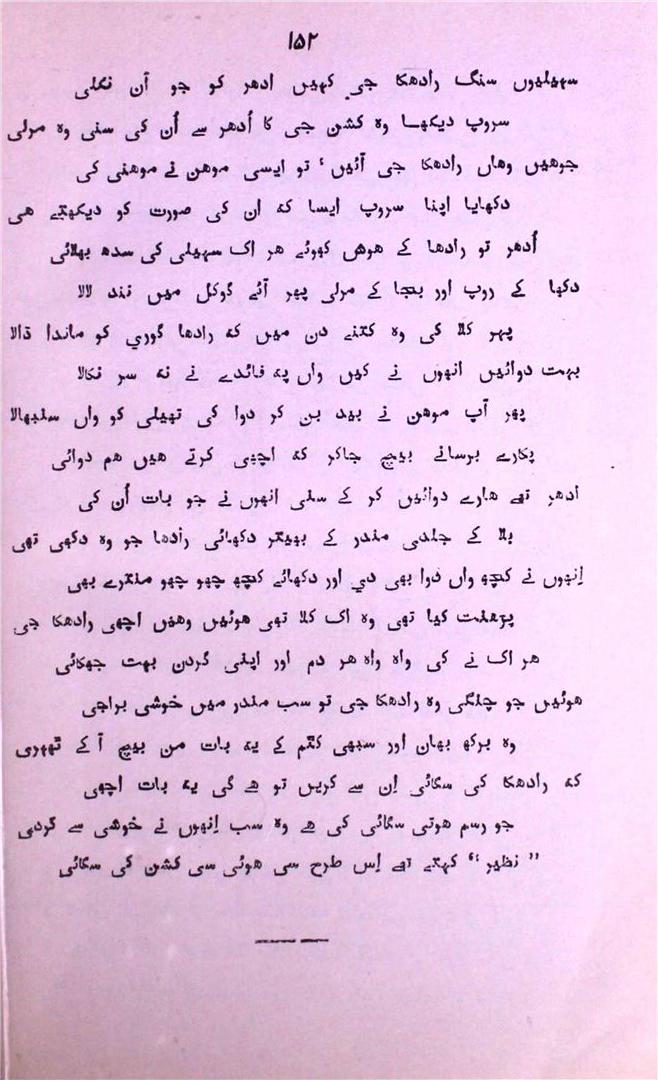 ۱۵۲
سہیلیوں سنگ رادھکا جی کہیں ادھر کو جو آن نکلی
سروپ دیکھا وہ کشن جی کا اُدھر سے اُن کی سنی وہ مرلی
جوھیں وھاں رادھکا جی آئیں، تو ایسی موھن نے موھنی کی
دکھایا اپنا سروپ ایسا کہ ان کی صورت کو دیکھتے ھی
اُدھر تو رادھا کے ھوش کھوئے ھر اک سہیلی کی سدھ بھلائی
دکھا کے روپ اور بجا کے مرلی پھر آئے گوکل میں نند لالا
پہر کلا کی وہ کتنے دن میں کہ رادھا گوری کو ماندا ڈالا
بہت دوائیں انھوں نے کیں واں پہ فائدے نے نہ سر نکالا
پھر آپ موھن نے بید بن کر دوا کی تھیلی کو واں سنبھالا
پکارے برسانے بیچ جاکر کہ اچھی کرتے ھیں ھم دوائی
اُدھر تھے ھارے دوائیں کر کے سنی انھوں نے جو بات اُن کی
بلا کے جلدی مندر کے بھیتر دکھائی رادھا جو وہ دکھی تھی
اِنھوں نے کچھ واں دوا بھی دی اور دکھائے کچھ چھو چھو منترے بھی
پڑھنت کیا تھی وہ اک کلا تھی ھوئیں وھیں اچھی رادھکا جی
ھر اک نے کی واہ واہ ھر دم اور اپنی گردن بہت جھکائی
ھوئیں جو چنگی وہ رادھکا جی تو سب مندر میں خوشی براجی
وہ برکھ بھان اور سبھی کٹم کے یہ بات من بیچ آ کے ٹھہری
کہ رادھکا کی سگائی اِن سے کریں تو ھے گی یہ بات اچھی
جو رسم ھوتی سگائی کی ھے وہ سب اِنھوں نے خوشی سے کردی
”نظیر“ کہتے تھے اِس طرح سی ھوئی سی کشن کی سگائی